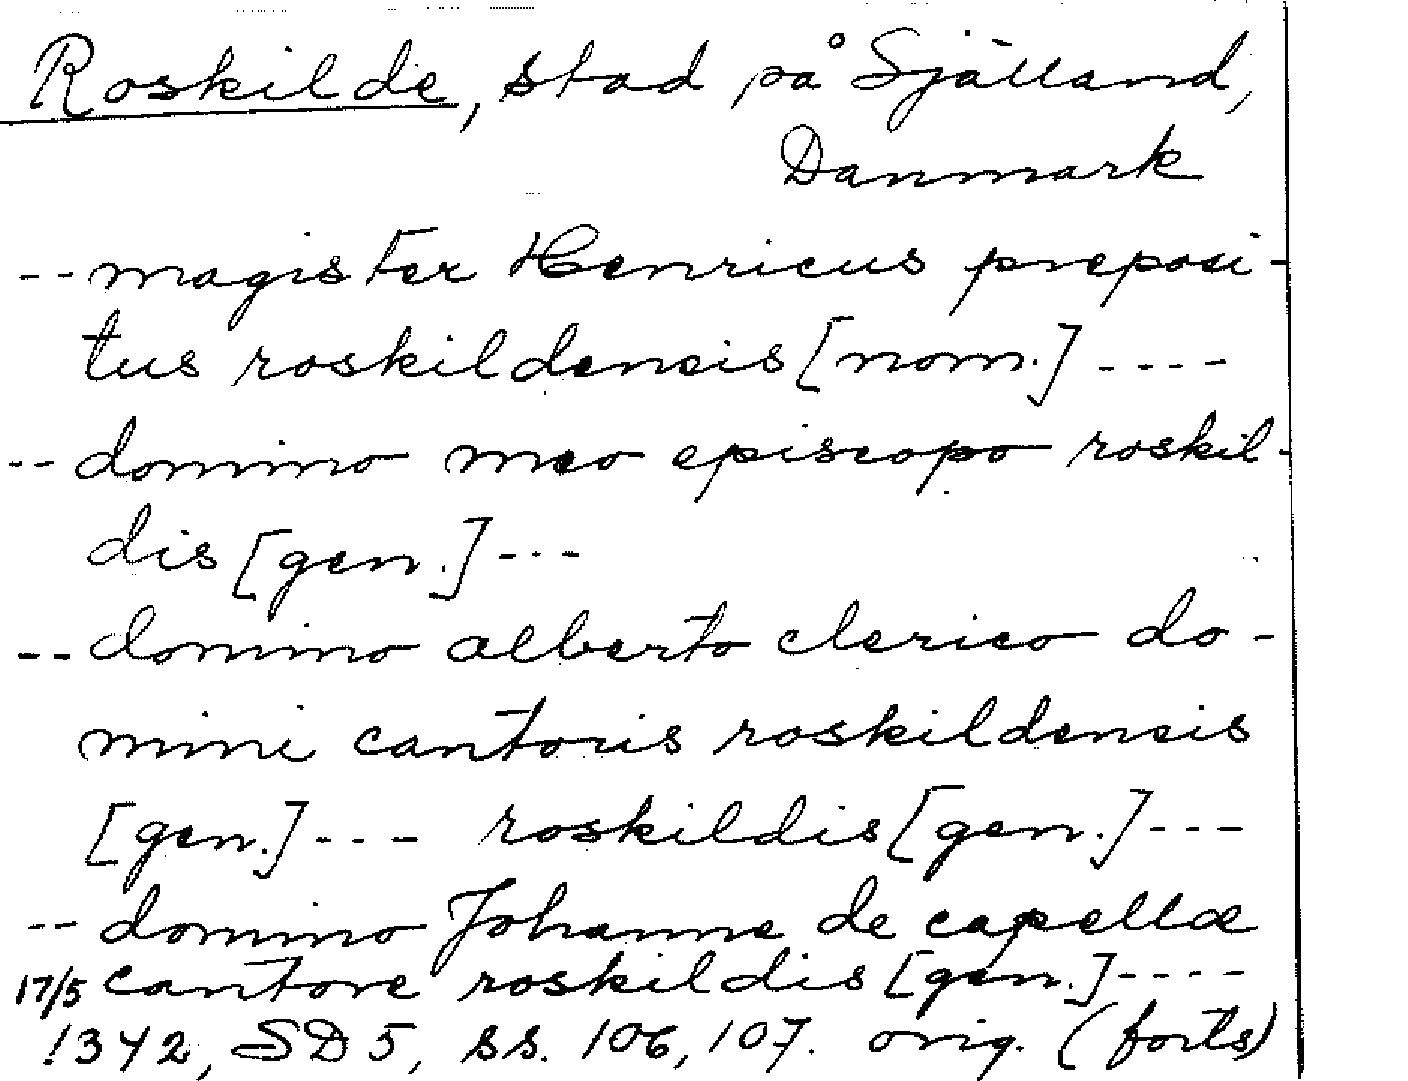 Roskilde, stad på Själland,
Danmark
-- magister Henricus preposi-
tus roskildensis [nom.] ----
-- domino meo episcopo roskil-
dis [gen.] ---
-- domino alberto clerico do-
mini cantoris roskildensis
[gen.] --- roskildis [gen.] ---
-- domino Johanne de capella
17/5 cantore roskildis [gen.] ----
1342, SD 5, ss. 106, 107. orig. (forts)